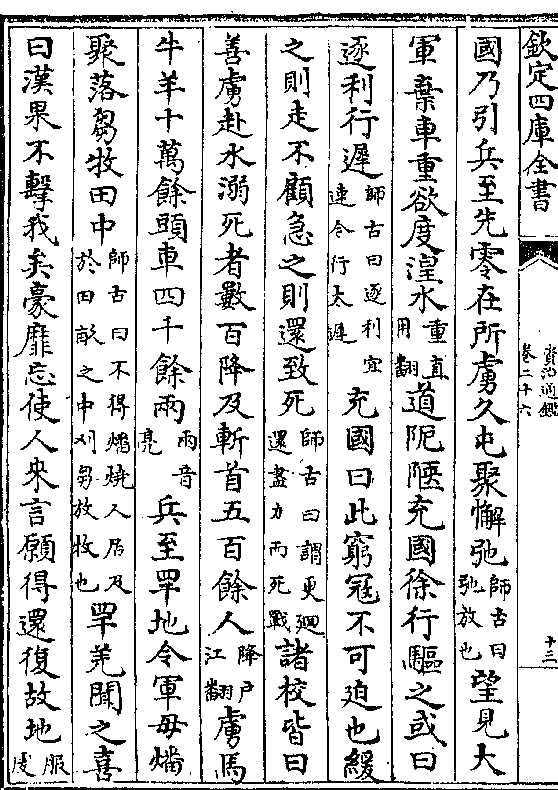 欽定四庫全書
資治通鑑
卷二十六
十三
國乃引兵至先零在所虜久屯聚懈弛師古曰弛放也望見大
軍棄車重欲度湟水重直用翻道阨陿充國徐行驅之或曰
逐利行遲師古曰逐利宜速今行太遲充國曰此窮冦不可迫也緩
之則走不顧急之則還致死師古曰謂更廻還盡力而死戰諸校皆曰
善虜赴水溺死者數百降及斬首五百餘人降戸江翻虜馬
牛羊十萬餘頭車四千餘兩兩音亮兵至䍐地令軍毋燔
聚落芻牧田中師古曰不得燔燒人居及於田畝之中刈芻放牧也䍐羌聞之喜
曰漢果不擊我矣豪靡忘使人來言願得還復故地服䖍